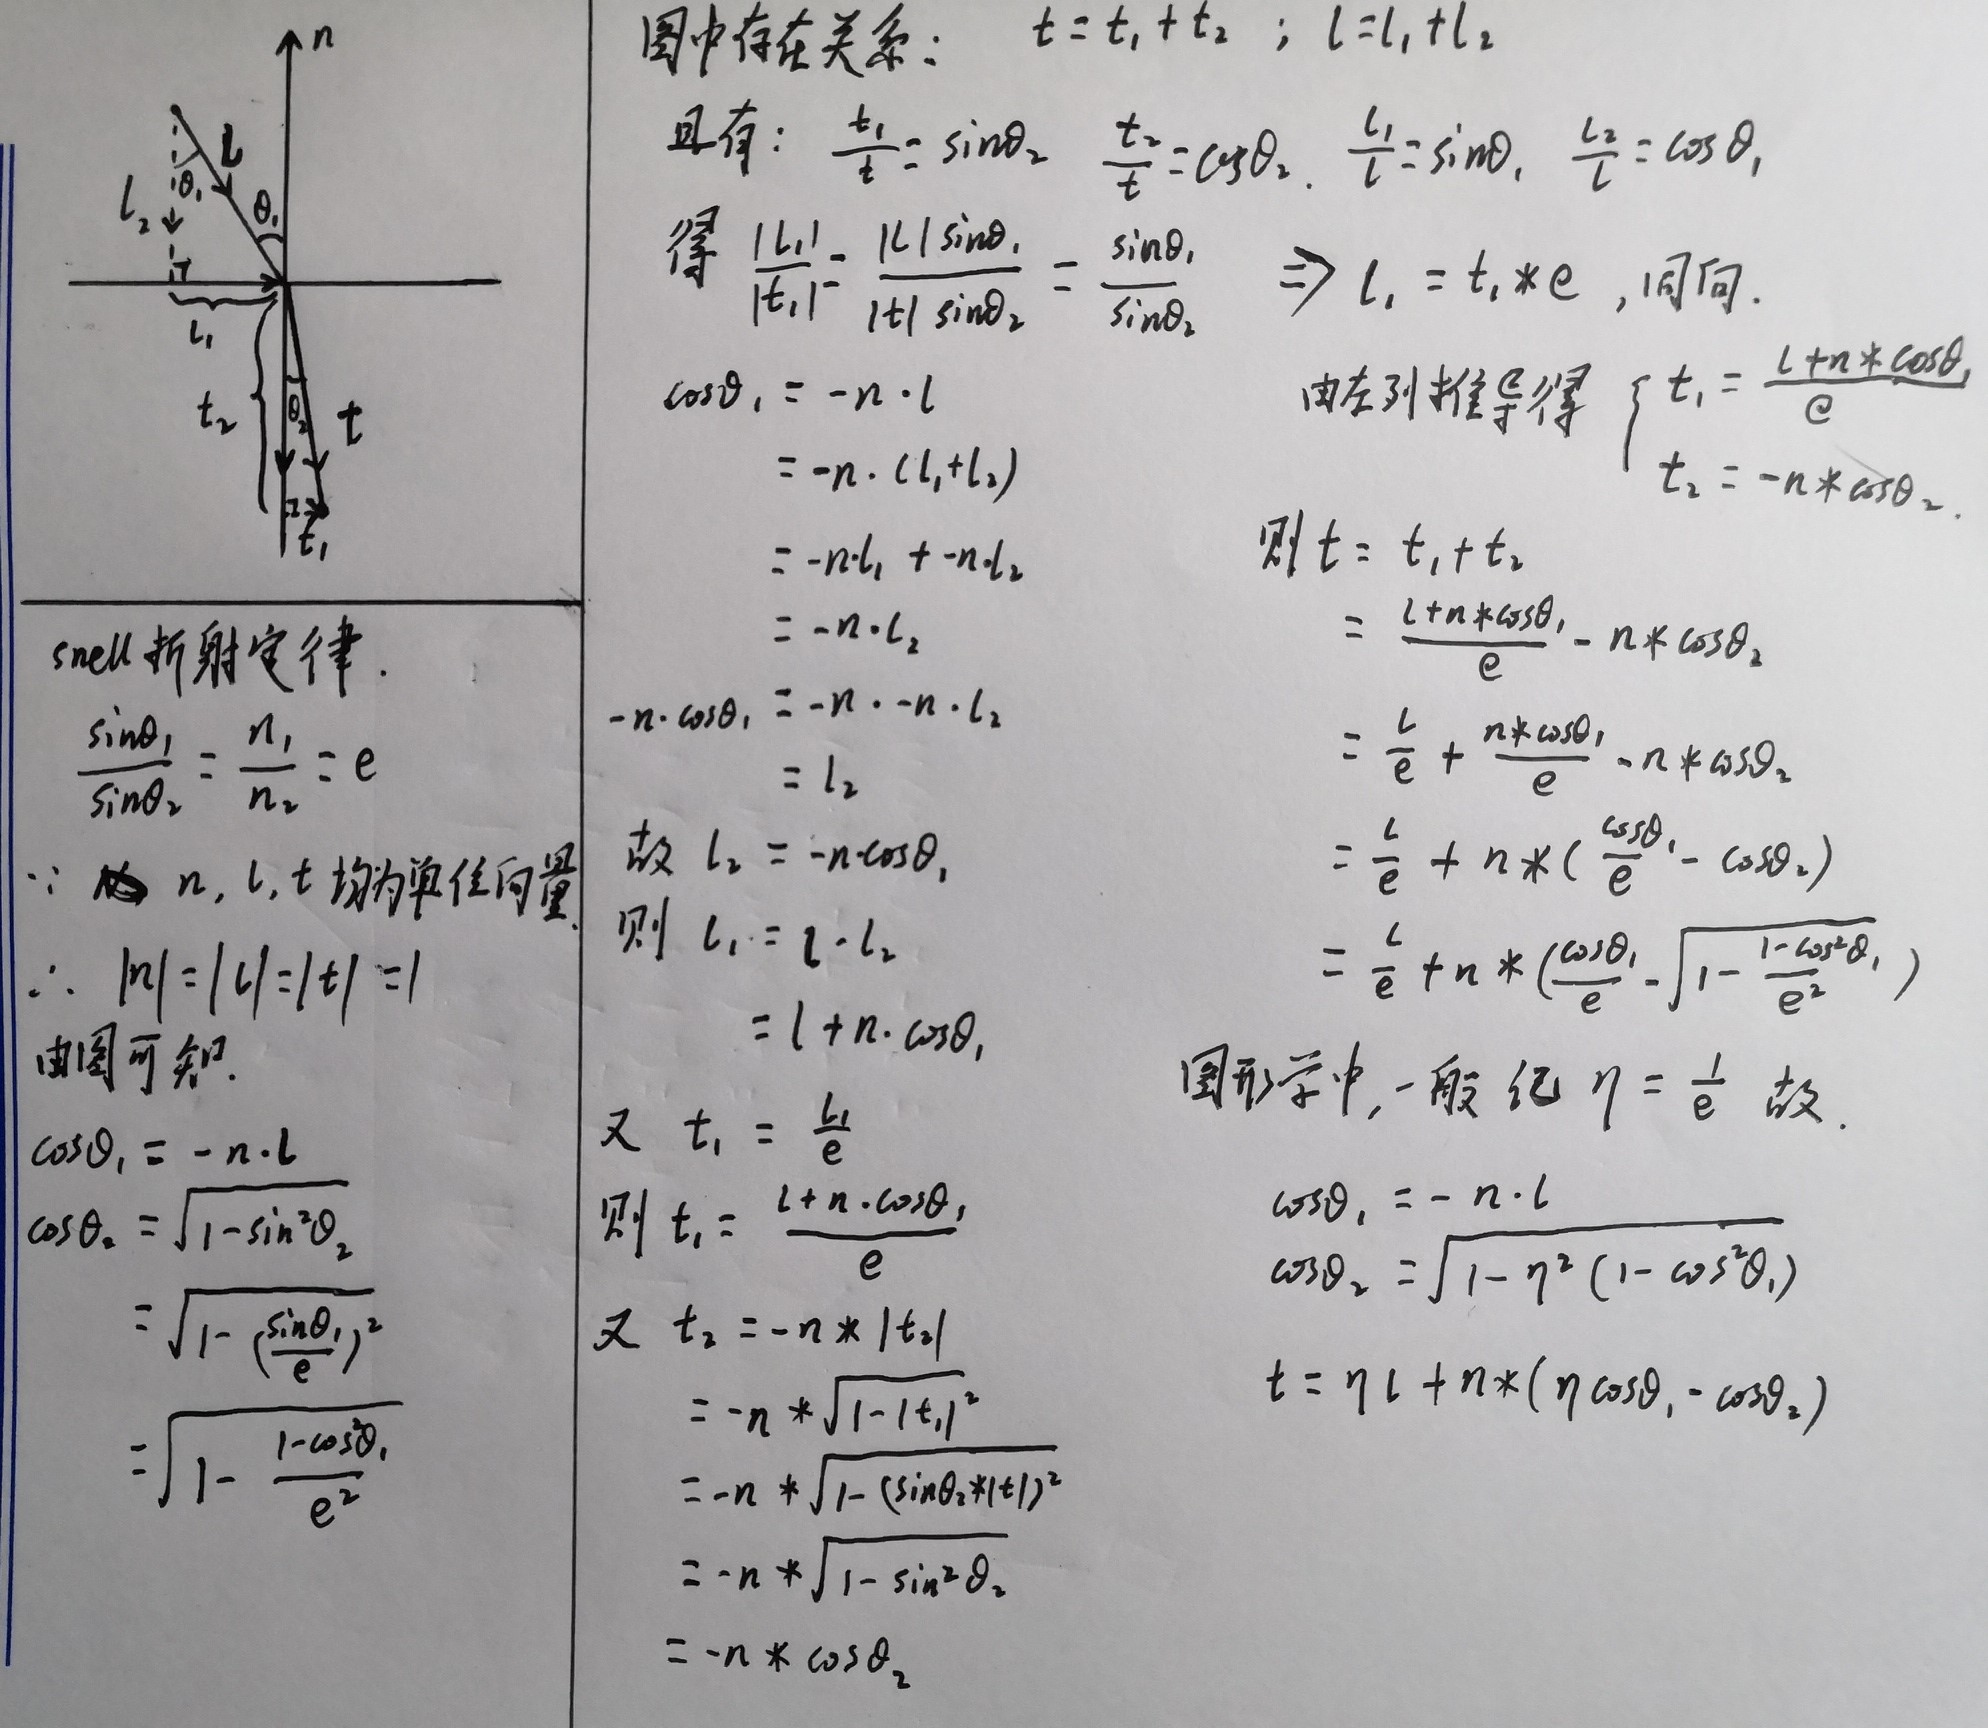 n
l
θ₁
θ₁
l₂
l₁
t₂
θ₂
t
t₁
snell折射定律.
sinθ₁/sinθ₂ = n₁/n₂ = e
∵ n, l, t 均为单位向量.
∴ |n|=|l|=|t|=1
由图可知.
cosθ₁ = -n·l
cosθ₂ = √(1-sin²θ₂)
= √(1-(sinθ₁/e)²)
= √(1-(1-cos²θ₁)/e²)
图中存在关系: t=t₁+t₂ ; l=l₁+l₂
且有: t₁/t = sinθ₂ t₂/t = cosθ₂. l₁/l = sinθ₁ l₂/l = cosθ₁
得 |l₁|/|t₁| = |l|sinθ₁/|t|sinθ₂ = sinθ₁/sinθ₂ ⇒ l₁ = t₁*e , 同向.
cosθ₁ = -n·l
= -n·(l₁+l₂)
= -n·l₁ + -n·l₂
= -n·l₂
-n·cosθ₁ = -n·-n·l₂
= l₂
故 l₂ = -n·cosθ₁
则 l₁ = l-l₂
= l+n·cosθ₁
又 t₁ = l₁/e
则 t₁ = (l+n·cosθ₁)/e
又 t₂ = -n*|t₂|
= -n*√(1-|t₁|²)
= -n*√(1-(sinθ₂*|t|)²)
= -n*√(1-sin²θ₂)
= -n*cosθ₂
由左列推导得 { t₁ = (l+n*cosθ₁)/e
t₂ = -n*cosθ₂.
则 t = t₁+t₂
= (l+n*cosθ₁)/e - n*cosθ₂
= l/e + n*cosθ₁/e - n*cosθ₂
= l/e + n*(cosθ₁/e - cosθ₂)
= l/e + n*(cosθ₁/e - √(1-(1-cos²θ₁)/e²))
图形学中,一般记 η = 1/e 故.
cosθ₁ = -n·l
cosθ₂ = √(1-η²(1-cos²θ₁))
t = ηl + n*(ηcosθ₁ - cosθ₂)